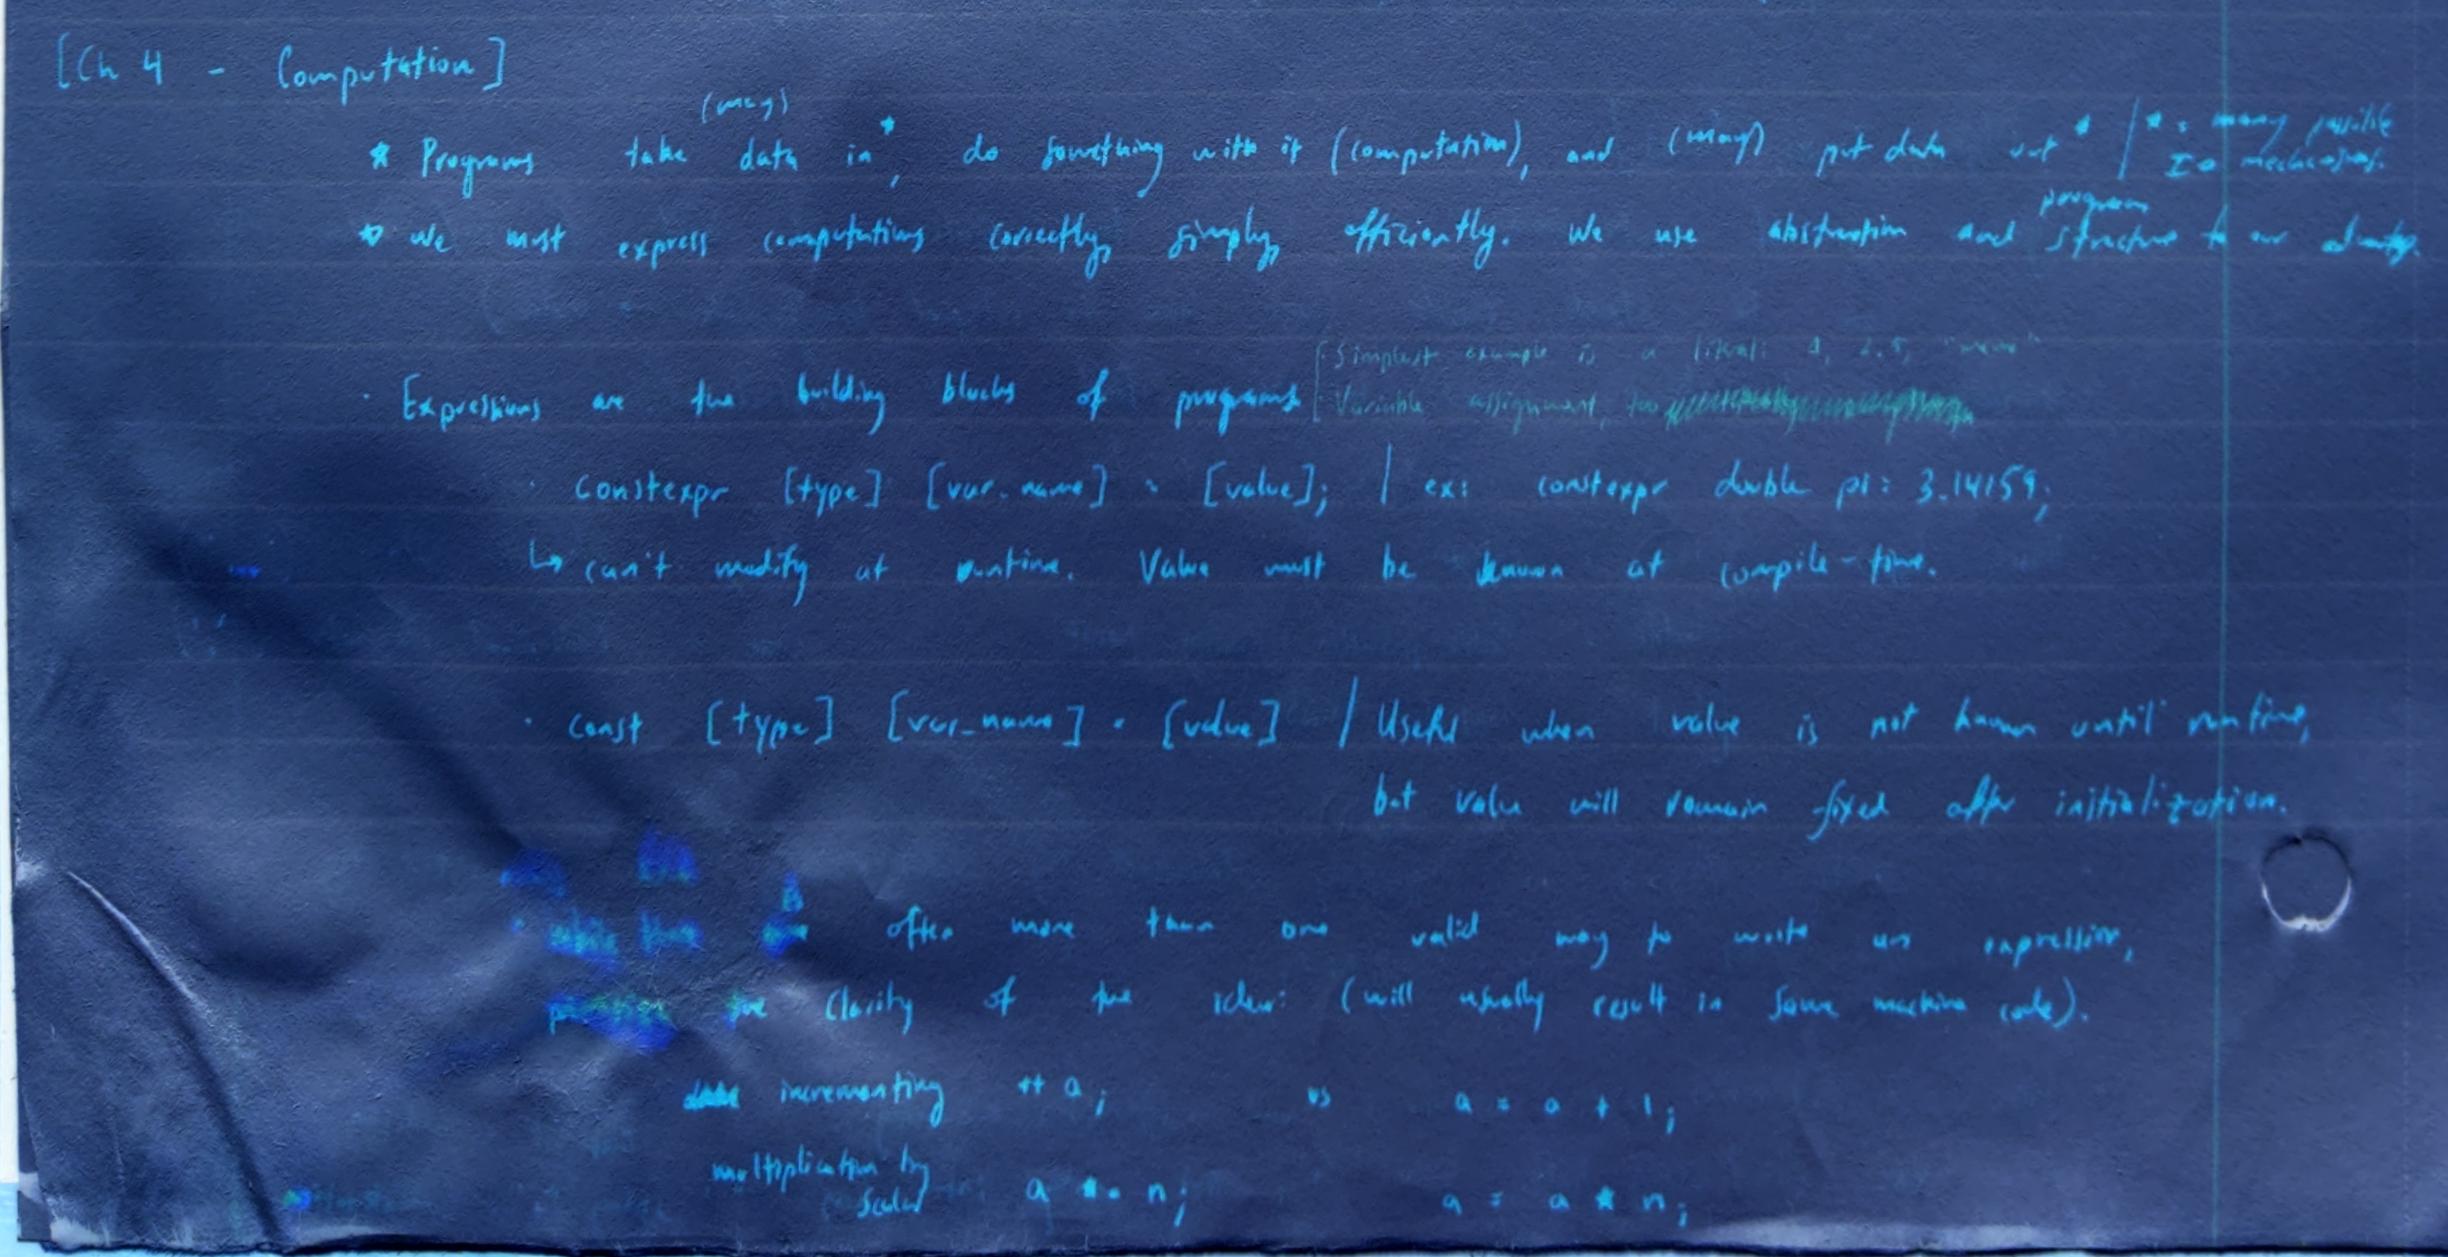 [Ch 4 - Computation]
(may)
* Programs take data in*, do something with it (computation), and (may) put data out* | * = many possible
IO mechanisms.
program
* We must express computations correctly, simply, efficiently. We use abstraction and structure to our
[Simplest example is a literal: 2.5,
· Expressions are the building blocks of programs [Variable assignment, too
· constexpr [type] [var_name] = [value]; | ex: constexpr double pi = 3.14159;
↳ can't modify at runtime. Value must be known at compile-time.
· const [type] [var_name] = [value] | Useful when value is not known until runtime,
but value will remain fixed after initialization.
· while there are often more than one valid way to write an expression,
the clarity of the idea: (will usually result in same machine code).
incrementing ++a; vs a = a + 1;
multiplication by
scalar a *= n; a = a * n;